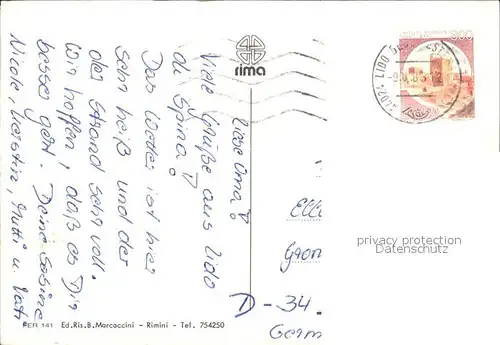 Liebe Oma!
Viele Grüße aus Lido
di Spina!
Das Wetter ist hier
sehr heiß und der
der Strand sehr voll.
Wir hoffen, daß es Dir
besser geht. Deine Sabine
Nicole, Kerstin, Mutti u. Vati
rima
800
Ell
Gron
D-34.
Germ
privacy protection
Datenschutz
FER 141 Ed.Ris.B.Marcaccini - Rimini - Tel. 754250